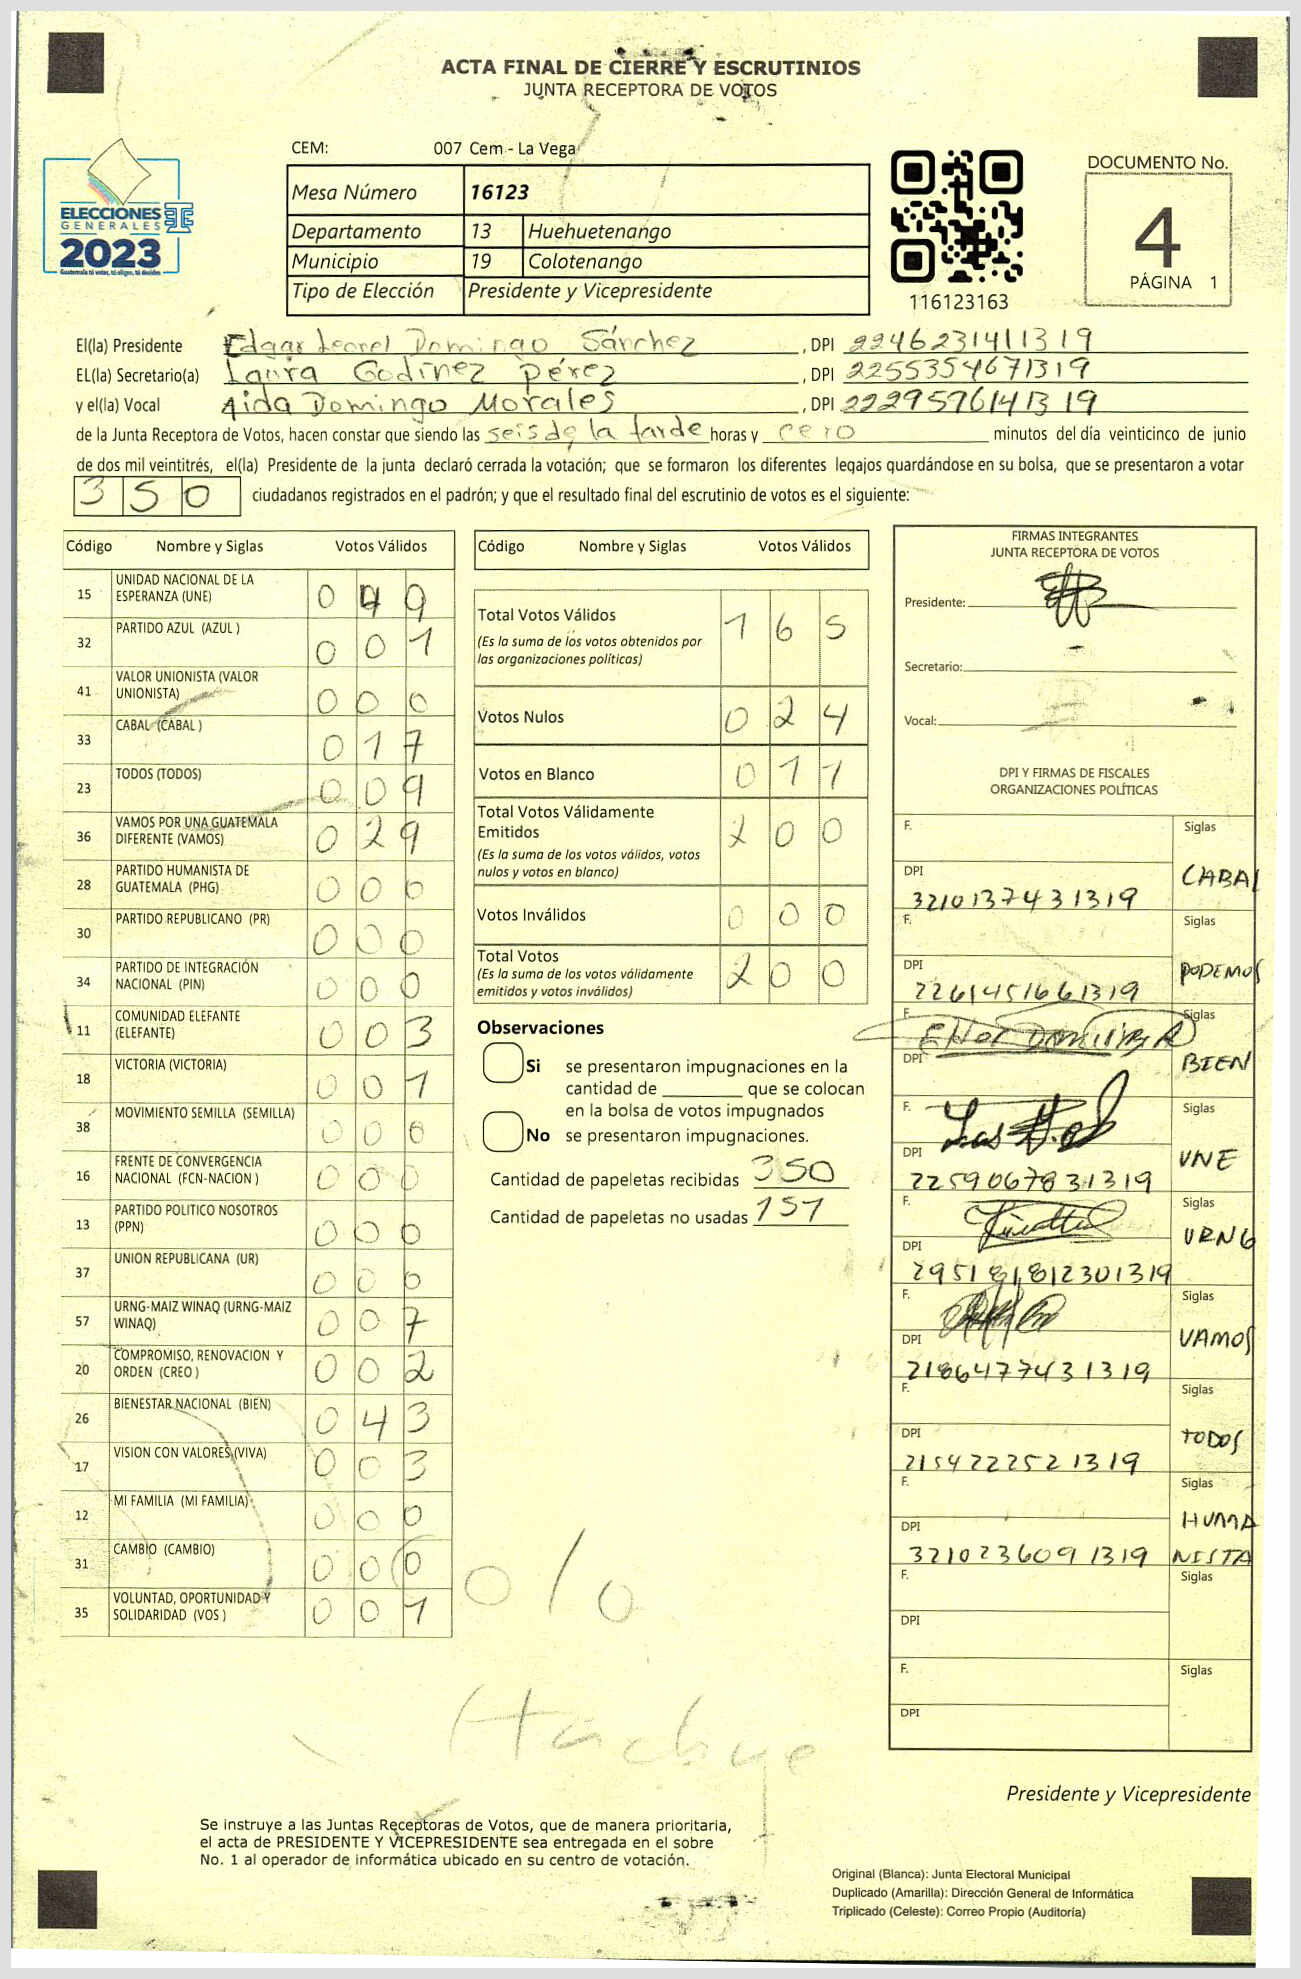 ACTA FINAL DE CIERRE Y ESCRUTINIOS
JUNTA RECEPTORA DE VOTOS
CEM: 007 Cem - La Vega
Mesa Número 16123
Departamento 13 Huehuetenango
Municipio 19 Colotenango
Tipo de Elección Presidente y Vicepresidente
ELECCIONES
GENERALES
2023
Guatemala tú votas, tú eliges, tú decides
116123163
DOCUMENTO No.
4
PÁGINA 1
El(la) Presidente Edgar Leonel Domingo Sánchez , DPI 2246231411319
EL(la) Secretario(a) Laura Godínez Pérez , DPI 2255354671319
y el(la) Vocal Aida Domingo Morales , DPI 2229596141319
de la Junta Receptora de Votos, hacen constar que siendo las seis de la tarde horas y cero minutos del día veinticinco de junio
de dos mil veintitrés, el(la) Presidente de la junta declaró cerrada la votación; que se formaron los diferentes legajos guardándose en su bolsa, que se presentaron a votar
350 ciudadanos registrados en el padrón; y que el resultado final del escrutinio de votos es el siguiente:
Código Nombre y Siglas Votos Válidos
15 UNIDAD NACIONAL DE LA ESPERANZA (UNE) 0 4 9
32 PARTIDO AZUL (AZUL ) 0 0 1
41 VALOR UNIONISTA (VALOR UNIONISTA) 0 0 0
33 CABAL (CABAL ) 0 1 7
23 TODOS (TODOS) 0 0 9
36 VAMOS POR UNA GUATEMALA DIFERENTE (VAMOS) 0 2 9
28 PARTIDO HUMANISTA DE GUATEMALA (PHG) 0 0 0
30 PARTIDO REPUBLICANO (PR) 0 0 0
34 PARTIDO DE INTEGRACIÓN NACIONAL (PIN) 0 0 0
11 COMUNIDAD ELEFANTE (ELEFANTE) 0 0 3
18 VICTORIA (VICTORIA) 0 0 1
38 MOVIMIENTO SEMILLA (SEMILLA) 0 0 0
16 FRENTE DE CONVERGENCIA NACIONAL (FCN-NACION ) 0 0 0
13 PARTIDO POLITICO NOSOTROS (PPN) 0 0 0
37 UNION REPUBLICANA (UR) 0 0 0
57 URNG-MAIZ WINAQ (URNG-MAIZ WINAQ) 0 0 7
20 COMPROMISO, RENOVACION Y ORDEN (CREO ) 0 0 2
26 BIENESTAR NACIONAL (BIEN) 0 4 3
17 VISION CON VALORES (VIVA) 0 0 3
12 MI FAMILIA (MI FAMILIA) 0 0 0
31 CAMBIO (CAMBIO) 0 0 0
35 VOLUNTAD, OPORTUNIDAD Y SOLIDARIDAD (VOS ) 0 0 1
Código Nombre y Siglas Votos Válidos
Total Votos Válidos 1 6 5
(Es la suma de los votos obtenidos por
las organizaciones políticas)
Votos Nulos 0 2 4
Votos en Blanco 0 1 1
Total Votos Válidamente
Emitidos 2 0 0
(Es la suma de los votos válidos, votos
nulos y votos en blanco)
Votos Inválidos 0 0 0
Total Votos 2 0 0
(Es la suma de los votos válidamente
emitidos y votos inválidos)
Observaciones
Si se presentaron impugnaciones en la
cantidad de ________ que se colocan
en la bolsa de votos impugnados
No se presentaron impugnaciones.
Cantidad de papeletas recibidas 350
Cantidad de papeletas no usadas 151
FIRMAS INTEGRANTES
JUNTA RECEPTORA DE VOTOS
Presidente:
Secretario:
Vocal:
DPI Y FIRMAS DE FISCALES
ORGANIZACIONES POLÍTICAS
F. Siglas
DPI CABAL
3210137431319
F. Siglas
DPI PODEMOS
2261451661319
F. Siglas
DPI BIEN
F. Siglas
DPI UNE
2259067831319
F. Siglas
DPI URNG
F. Siglas
DPI VAMOS
2186477431319
F. Siglas
DPI TODOS
2154222521319
F. Siglas
DPI HUMA
3210236091319 NISTA
F. Siglas
DPI
F. Siglas
DPI
Presidente y Vicepresidente
Se instruye a las Juntas Receptoras de Votos, que de manera prioritaria,
el acta de PRESIDENTE Y VICEPRESIDENTE sea entregada en el sobre
No. 1 al operador de informática ubicado en su centro de votación.
Original (Blanca): Junta Electoral Municipal
Duplicado (Amarilla): Dirección General de Informática
Triplicado (Celeste): Correo Propio (Auditoría)